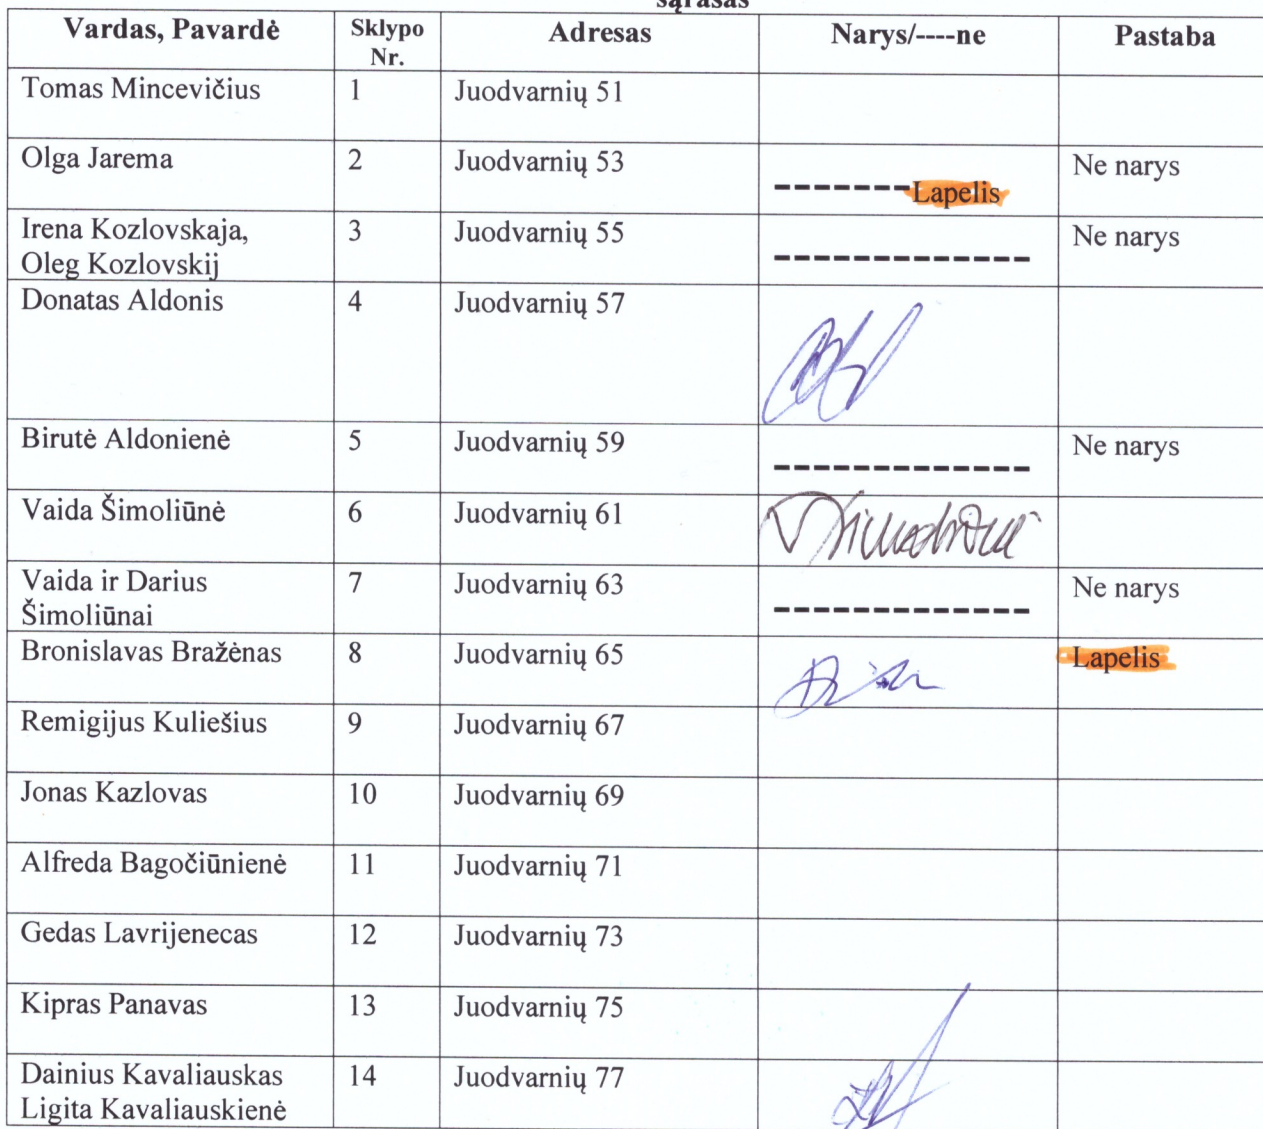 sąrašas
Vardas, Pavardė Sklypo Nr. Adresas Narys/----ne Pastaba
Tomas Mincevičius 1 Juodvarnių 51
Olga Jarema 2 Juodvarnių 53 -------Lapelis Ne narys
Irena Kozlovskaja, 3 Juodvarnių 55 ------------- Ne narys
Oleg Kozlovskij
Donatas Aldonis 4 Juodvarnių 57
Birutė Aldonienė 5 Juodvarnių 59 ------------- Ne narys
Vaida Šimoliūnė 6 Juodvarnių 61
Vaida ir Darius 7 Juodvarnių 63 ------------- Ne narys
Šimoliūnai
Bronislavas Bražėnas 8 Juodvarnių 65 Lapelis
Remigijus Kuliešius 9 Juodvarnių 67
Jonas Kazlovas 10 Juodvarnių 69
Alfreda Bagočiūnienė 11 Juodvarnių 71
Gedas Lavrijenecas 12 Juodvarnių 73
Kipras Panavas 13 Juodvarnių 75
Dainius Kavaliauskas 14 Juodvarnių 77
Ligita Kavaliauskienė